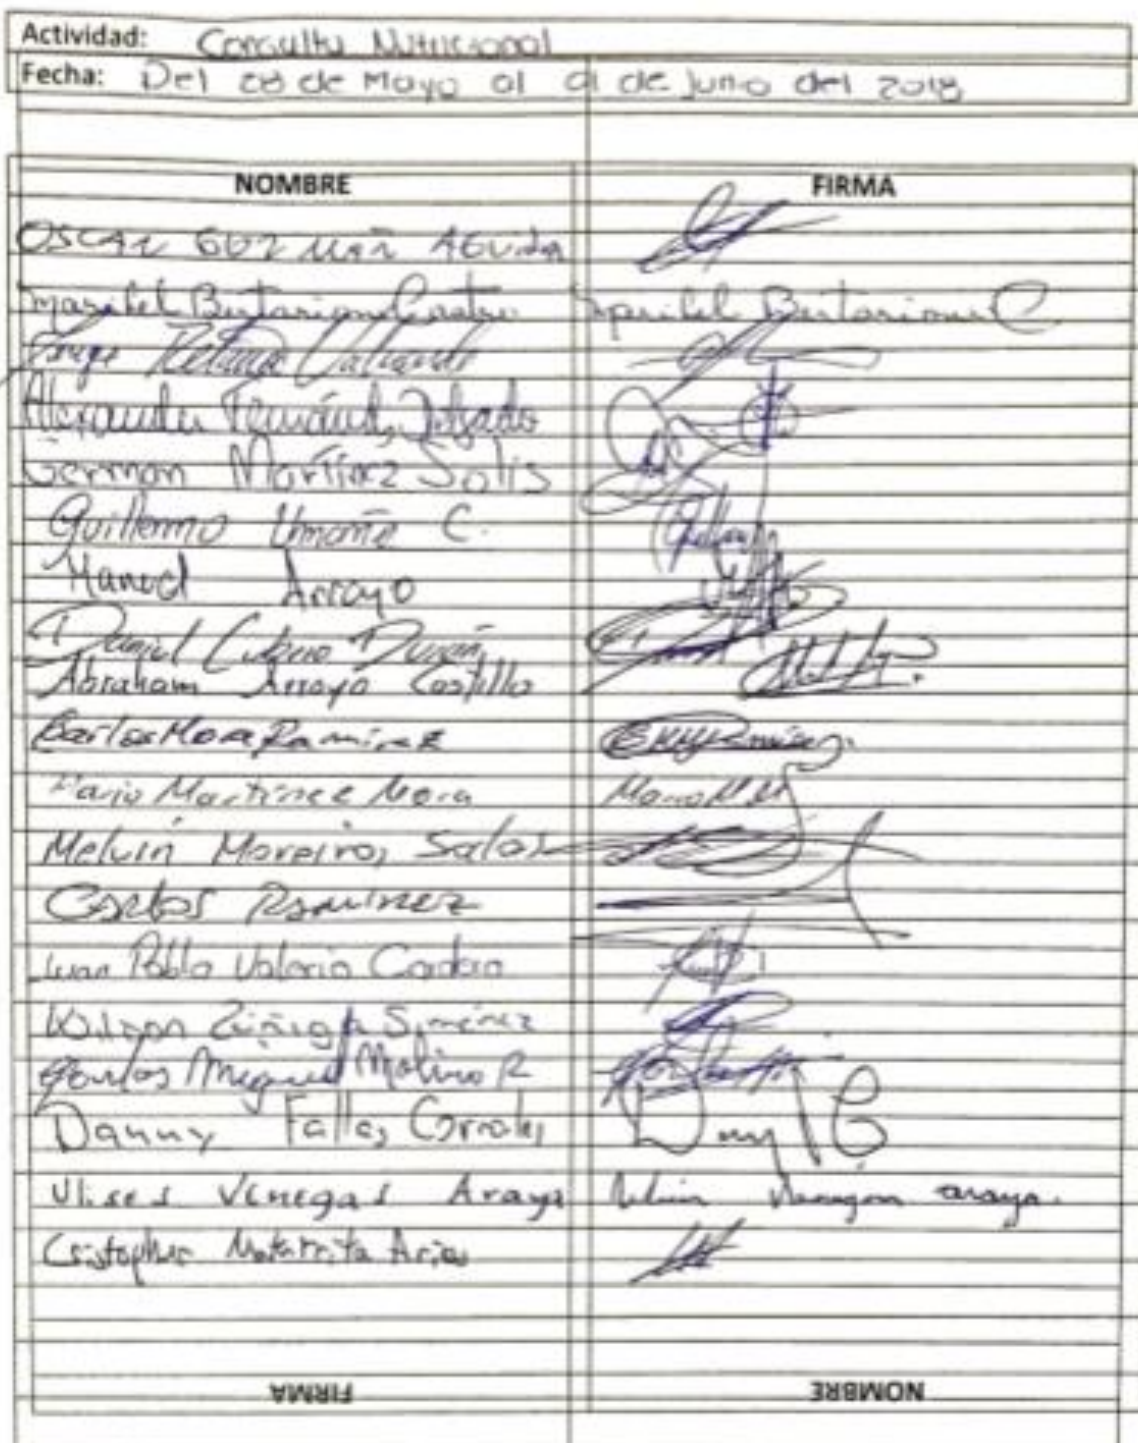 Actividad: Consulta Nutricional
Fecha: Del 28 de Mayo al 01 de Junio del 2018
NOMBRE FIRMA
OSCAR GUZMAN AGUILAR
Maribel Bertarioni Castro Maribel Bertarioni C
Jorge Retana
Alexander Fernández Delgado
German Martínez Solis
Guillermo Umaña C.
Manuel Arroyo
Daniel Cubero Durán
Abraham Arroyo Castillo
Carlos Mora Ramirez
Mario Martinez Mora Mario M.M
Melvin Moreira Salas
Carlos Ramirez
Juan Pablo Valerio Cordero
Wilson Zúñiga Simenez
Carlos Miguel Molina R
Danny Fallas Corrales
Ulises Venegas Araya Araya
Cristopher Matarrita Arias
FIRMA NOMBRE